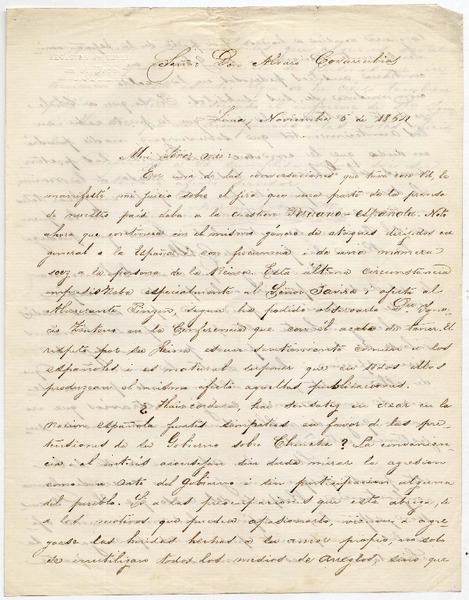 Señor Don Alvaro Covarrubias
Lima, Noviembre 5 de 1864
Mui señor mio:
En una de las conversaciones que tuve con Ud. le
manifesté mi juicio sobre el jiro que una parte de la prensa
de nuestro pais daba a la cuestion Peruano-española. Noto
ahora que continúa en el mismo género de ataques dirijidos en
general a la España i con frecuencia i de una manera
soez a la persona de la Reina. Esta última circunstancia
especialmente al Señor Tavira i afecta al
Almirante Pinzon, segun ha podido observarlo Don Ignacio
Zenteno en la Conferencia que con él acaba de tener. El
respeto por su Reina es un sentimiento comun a los
españoles i es natural suponer que en todos ellos
produzcan el mismo efecto aquellas publicaciones.
¿Hai cordura, hai sensatez en crear en la
Nacion española fuertes simpatías en favor de las pre-
tensiones de su Gobierno sobre Chincha? La convenien-
cia i el interés aconsejan sin duda mirar la agresion
como un acto del Gobierno i sin participacion alguna
del pueblo. Si a las preocupaciones que este abriga, si
a los motivos que puedan apasionarlo, vienen a agre-
garse las heridas hechas a su amor propio, no solo
se inutilizan todos los medios de arreglos, sino que